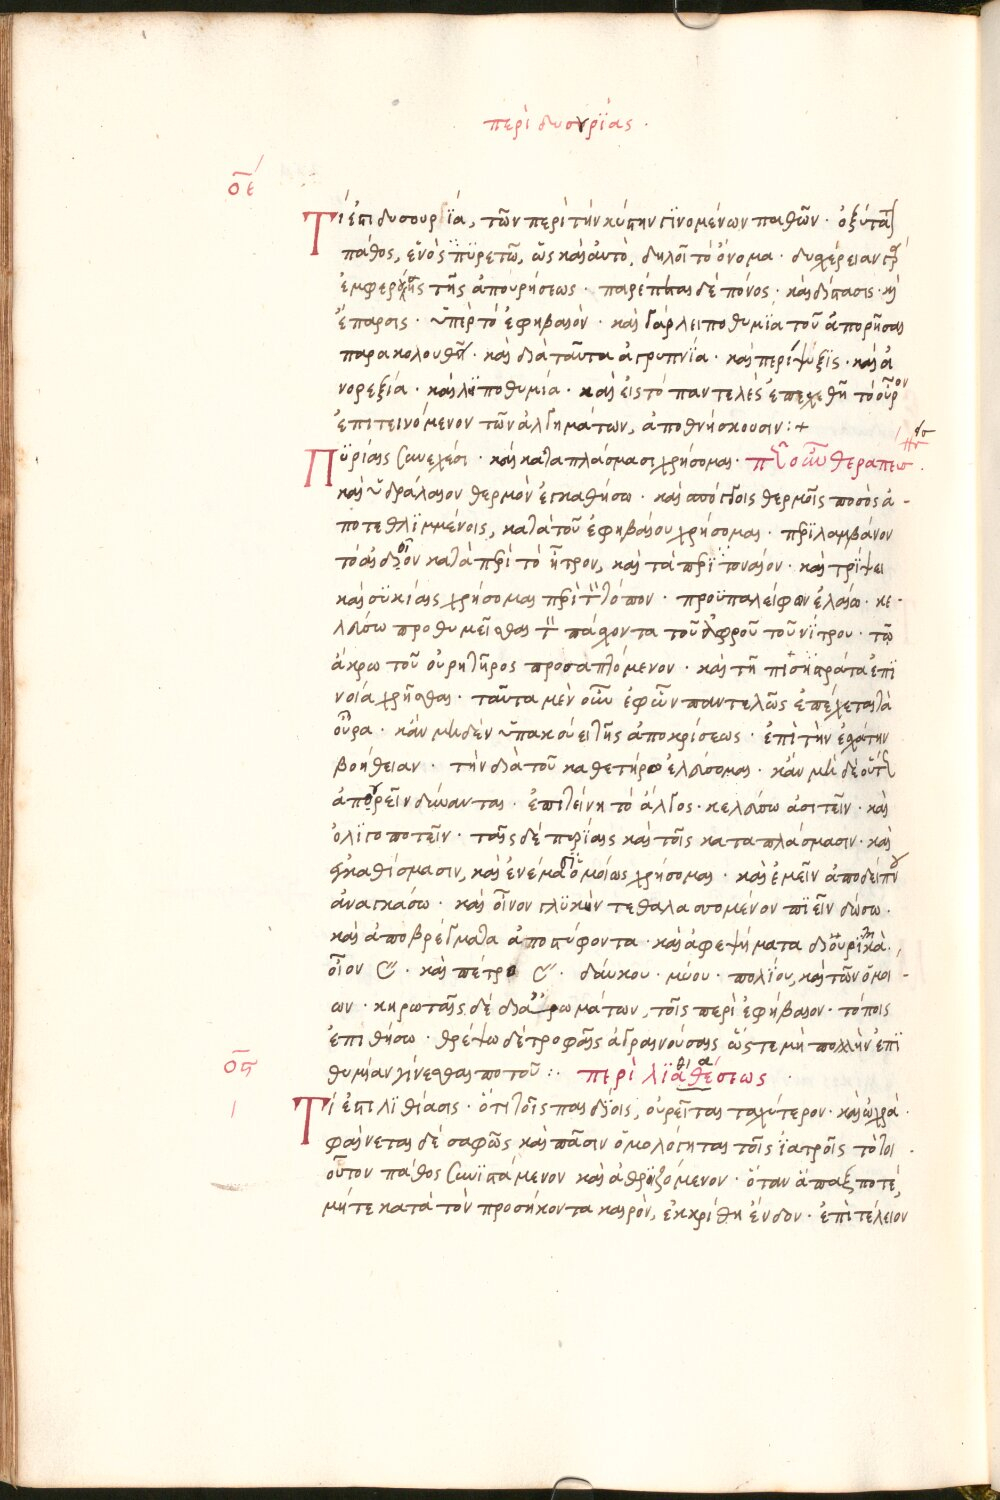 περὶ δυσουρΐας ·
οε
Τί ἐστι δυσουρϊά, τῶν περὶ τὴν κύστην γϊνομένων παθῶν · ὀξύτατον
πάθος, εὔνὸς πϋρετῶ, ὣς καὶ αὐτὸ, δηλοῖ τὸ ὄνομα · δυχέρειαν γὰρ
ἐμφερ τῆς ἀπουρήσεως · παρέπεται δὲ πόνος · καὶ διάτασις · καὶ
ἔπαρσις · ὑπὲρ τὸ ἐφηβαιὸν · καὶ γὰρ λειποθυμϊα τοῦ ἀπορῆσαι
παρακολουθεῖ · καὶ διὰ ταῦτα ἀγρυπνϊά · καὶ περίψυξϊς · καὶ ἀ
νορεξία · καὶ λϊποθυμία · καὶ εἰς τὸ παντελὲς ἐπεχεθῆ τὸ οὖρον
ἐπιτεινόμενον τῶν ἀλγημάτων, ἀποθνήσκουσιν : +
Πϋρίαις συνεχέσι · καὶ καταπλάσμασι χρήσομαι · πῶς οὖν θεραπεύσεις .
καὶ ὑδραλαιον θερμὸν ἐγκαθήσω · καὶ σπόγγοις θερμοῖς ποσὸς ἀ -
ποτεθλϊμμένοις, κατὰ τοῦ ἐφηβαίου χρήσομαι · περϊλαμβάνον
τὸ αἰδοῖον κατὰ περὶ τὸ ἦτρον, καὶ τὰ περϊτοναιόν · καὶ τρΐψει
καὶ σϋκίαις χρήσομαι περὶ τὸν τόπον · προϋπαλείφων ἐλαίω · κε -
λεύσω προθυμεῖσθαι τὸν πάχοντα τοῦ ἀφροῦ τοῦ νίτρου · τῶ
ἄκρω τοῦ οὐρητῆρος προσαπτόμενον · καὶ τῆ πείση πράτα ἐπϊ
νοία χρῆσθαι · ταῦτα μὲν οὖν ἐφ' ὧν παντελῶς ἐπέχεται τὰ
οὖρα · κἂν μηδὲν ὑπακούει τῆς ἀποκρίσεως · ἐπὶ τὴν ἐχάτην
βοήθειαν · τὴν διὰ τοῦ καθετήρο ἐλεύσομαι · κἂν μὴ δὲ οὕτως
ἀπορεῖν δύωανται · ἐπιτείνη τὸ ἄλγος · κελεύσω ἀσιτεῖν · καὶ
ὀλϊγοποτεῖν · ταῖς δὲ πυρίαις καὶ τοῖς καταπλάσμασιν · καὶ
ἐγκαθίσμασιν, καὶ ἐνέμασϊ ὁμοίως χρήσομαι · καὶ ἐμεῖν ἀπὸ δείπνου
ἀναγκάσω · καὶ οἶνον γλϋκὺν τεθαλασσομένον πϊεῖν δώσω ·
καὶ ἀποβρέγματα ἀποστύφοντα · καὶ ἀφεψήματα διουρϊτικὰ ·
οἷον · καὶ πέτρο · δαύκου · μύου · πολΐου, καὶ τῶν ὁμοι -
ων · κηρωταῖς δὲ διὰ ἀρωμάτων, τοῖς περὶ ἐφήβαιον · τόποις
ἐπιθήσω · θρέψω δὲ τροφαῖς ἁδραινούσαις ὥς τε μὴ πολλὴν ἐπϊ
θυμίαν γίνεσθαι ποτοῦ : · περὶ λϊαθέσεως ·
ος
Τί ἐστι λϊθίασις · ὅτι τοῖς παιδΐοις, οὐρεῖται ταχύτερον · καὶ ὠχρά ·
φαίνεται δὲ σαφῶς καὶ πᾶσιν ὁμολόγηται τοῖς ἰατροῖς τὸ τοι -
οῦτον πάθος συνϊστάμενον καὶ ἀθροϊζόμενον · ὅταν ἅπαξ ποτέ,
μήτε κατὰ τὸν προσήκοντα καιρόν, ἐκκρίθη ἔνδον · ἐπὶ τέλειον